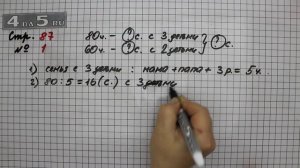 4DA5.RU
Стр. 87
№ 1
80ч. - ?с. с 3 детьми
60ч. - ?с. с 2 детьми
?с.
1) семья с 3 детьми : мама + папа + 3 р. = 5 ч.
2) 80 : 5 = 16 (с.) с 3 детьми